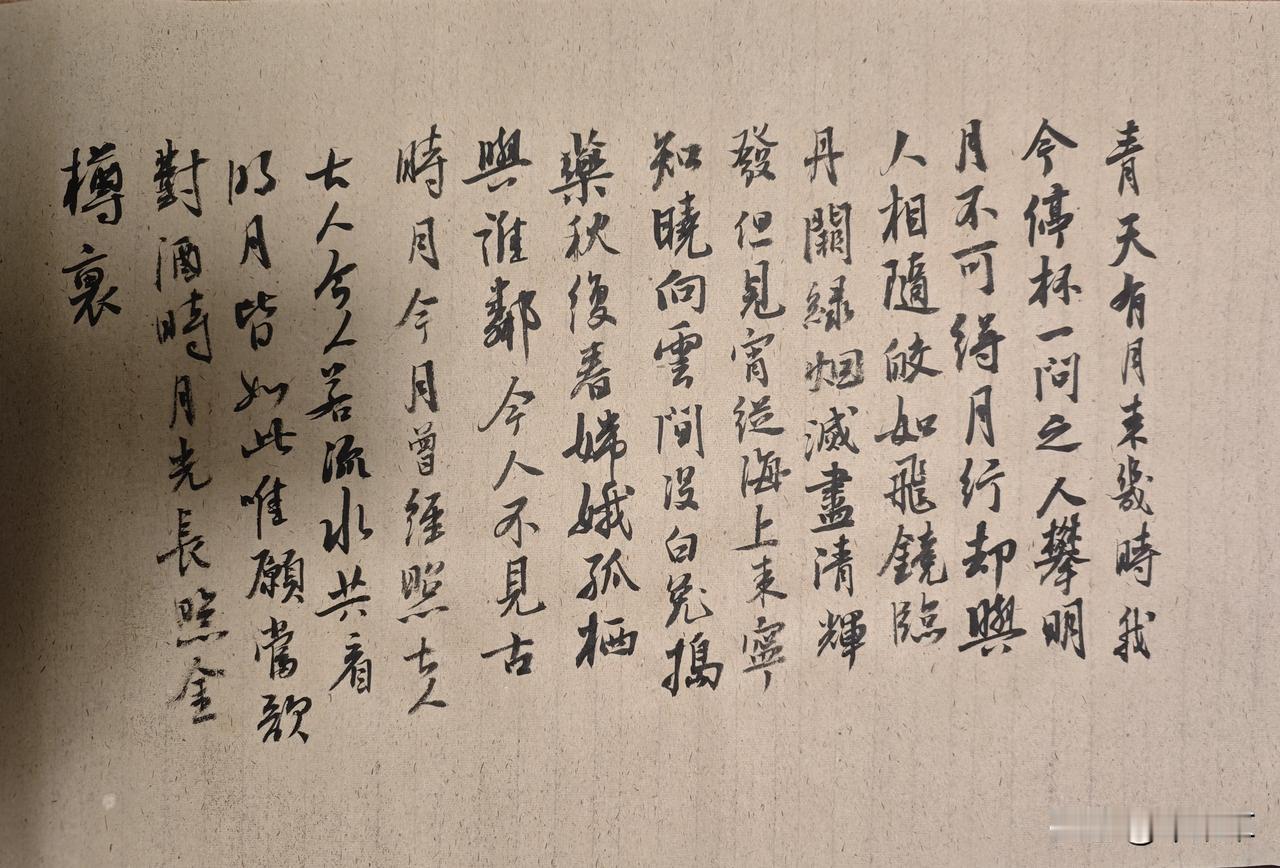 青天有月来幾時我
今停杯一問之人攀明
月不可得月行却與
人相隨皎如飛鏡臨
丹闕緑烟滅盡清輝
發但見宵從海上来寧
知曉向雲間没白兔搗
藥秋復春嫦娥孤栖
與誰鄰今人不見古
時月今月曾經照古人
古人今人若流水共看
明月皆如此唯願當歌
對酒時月光長照金
樽裏